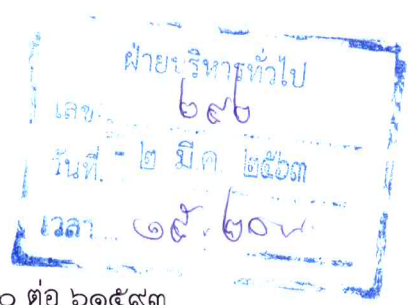 ฝ่ายบริหารทั่วไป
เลข ๒๙๒
วันที่ - ๒ มี.ค. ๒๕๖๓
เวลา ๑๕.๒๐ น
๐ ต่อ ๖๑๕๙๓